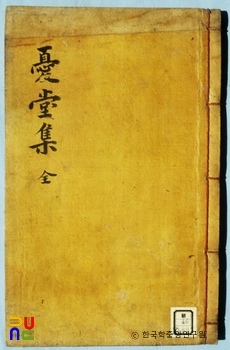 憂堂集
全
© 한국학중앙연구원